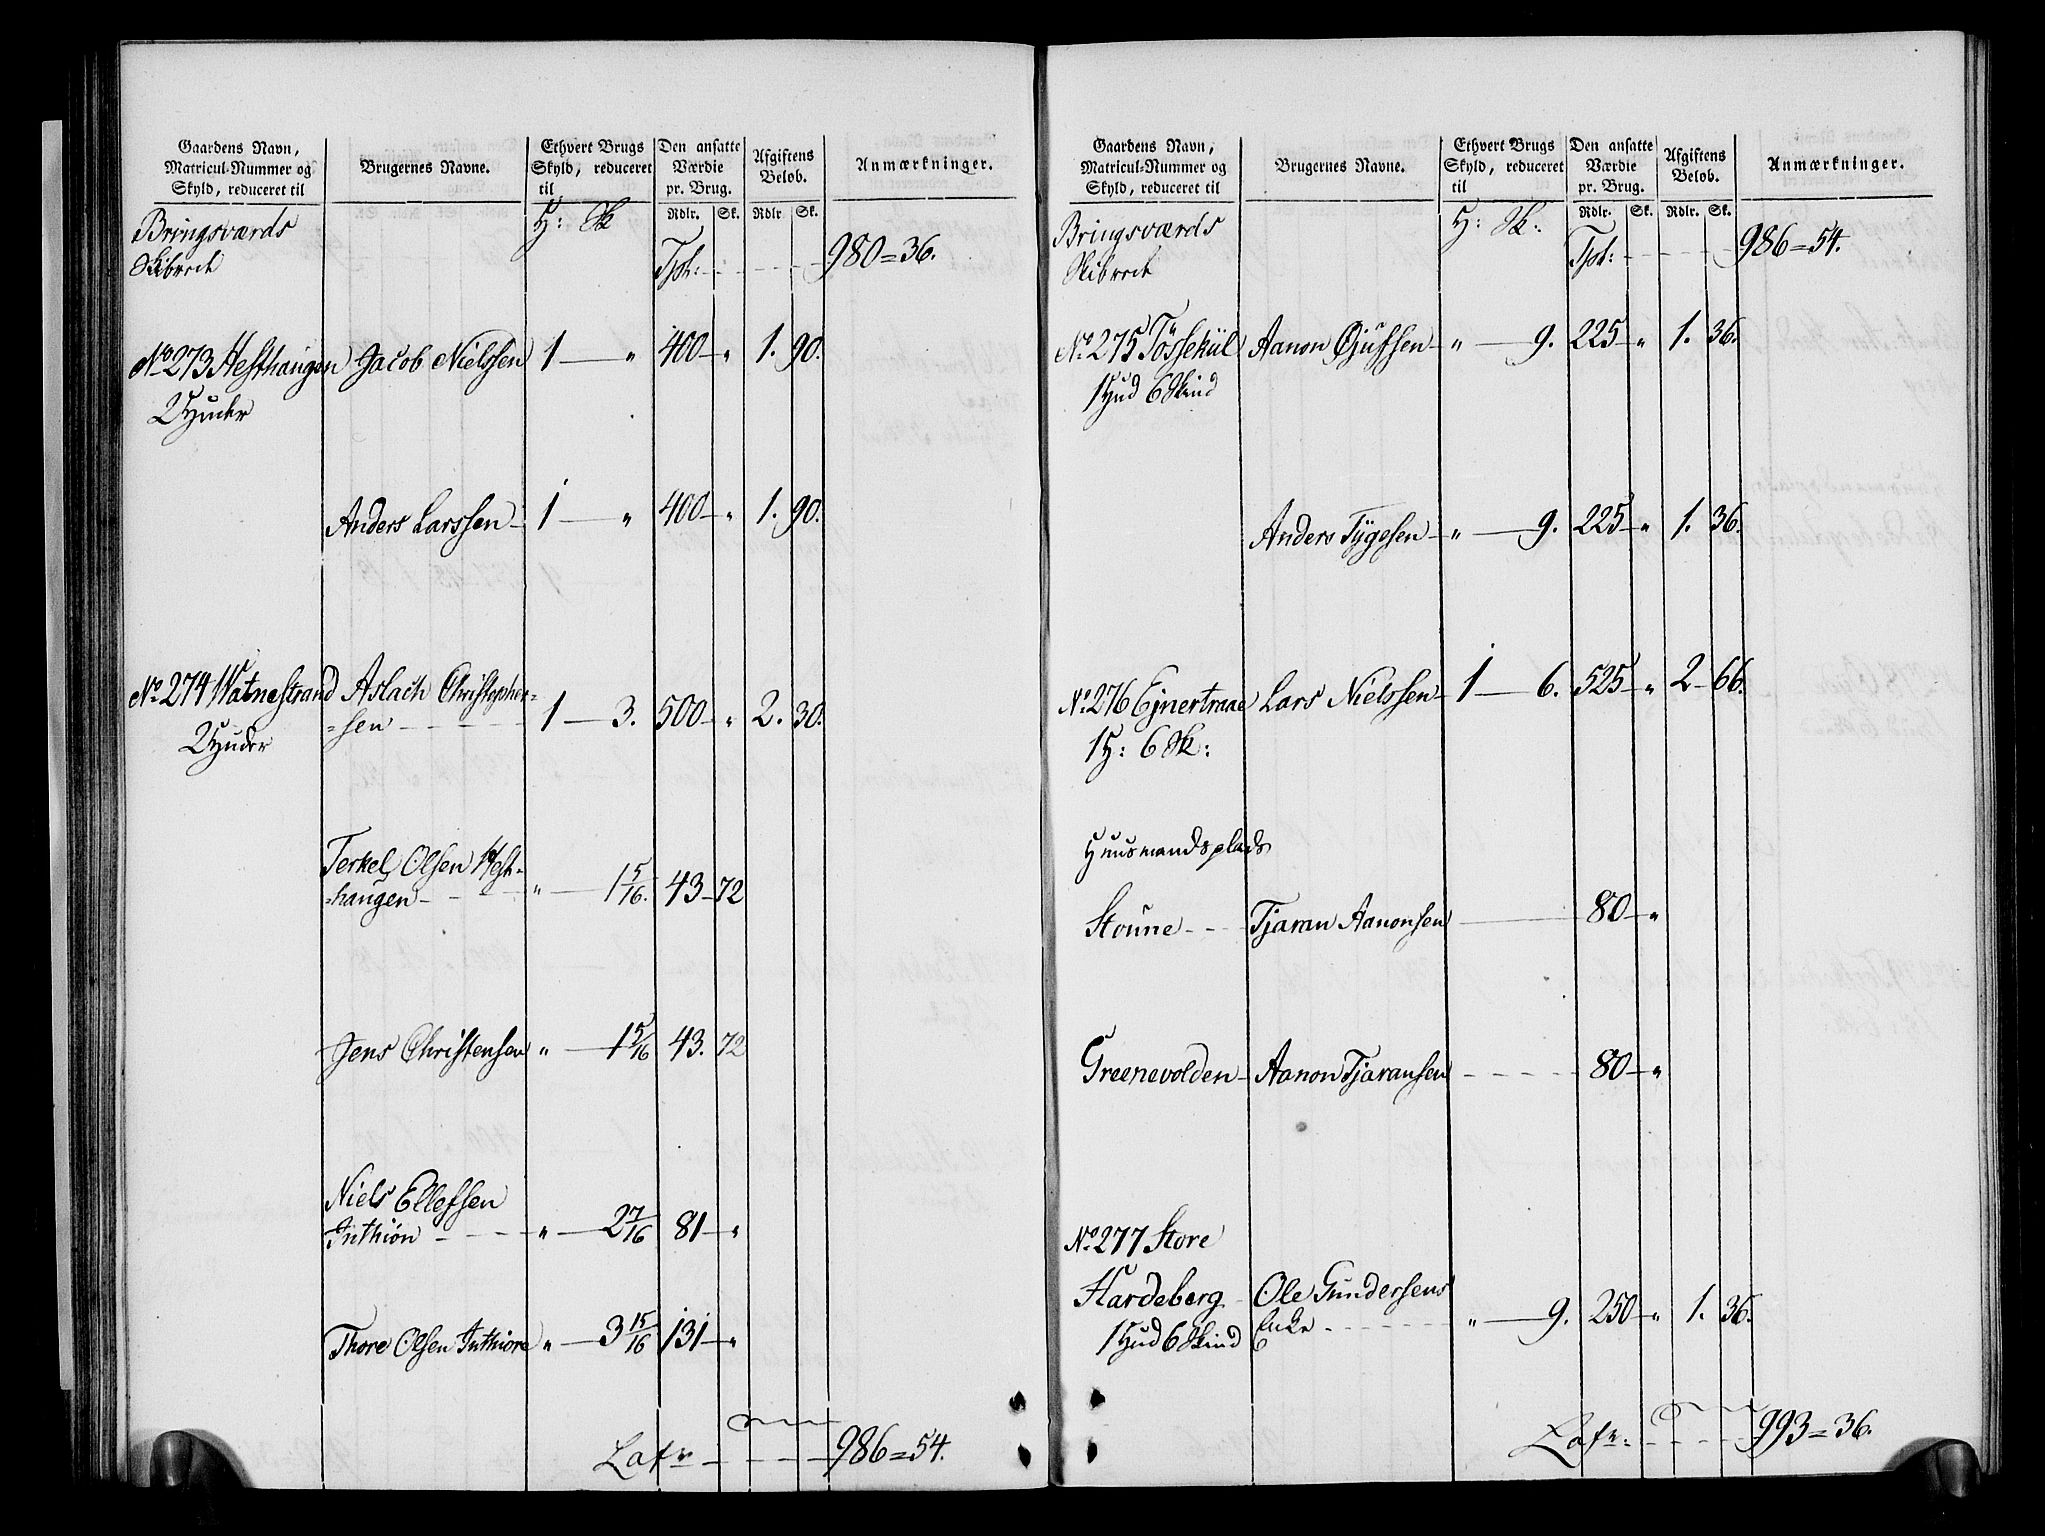 Gaardens Navn, Matricul-Nummer og Skyld, reduceret til | Brugernes Navne. | Ethvert Brugs Skyld, reduceret til | Den ansatte Værdie pr. Brug. | Afgiftens Beløb. | Anmærkninger.
H: Sk | Rdlr. Sk. | Rdlr. Sk.
Bringsværds
Skibred Tpt: 980=36.
No 273 Hesthaugen Jacob Nielssen 1 — " 400 — " 1. 90.
2 Huder
Anders Larssen 1 — " 400 — " 1. 90.
No 274 Watnestrand Aslach Christopher-
2 Huder =sen 1 — 3. 500 — " 2. 30.
Terkel Olsen Hest-
=haugen " — 1 5/16. 43 — 72
Jens Christensen " — 1 5/16 43. 72
Niels Ellefsen
Inthiön " — 2 7/16 81 — "
Thore Olsen Inthiore " — 3 15/16 131 — "
Latr 986=54.
Gaardens Navn, Matricul-Nummer og Skyld, reduceret til | Brugernes Navne. | Ethvert Brugs Skyld, reduceret til | Den ansatte Værdie pr. Brug. | Afgiftens Beløb. | Anmærkninger.
H: Sk: | Rdlr. Sk. | Rdlr. Sk.
Bringsværds
Skibred Tpt: 986=54.
No 275 Tösseküil Aanon Øjufsen " — 9. 225 — " 1. 36.
1 Hud 6 Skind
Anders Tÿgesen " — 9. 225 — " 1. 36.
No 276 Ejnertraae Lars Nielssen 1 — 6. 525 — " 2 — 66.
1 H: 6 Sk:
Huusmandsplads
Stoune Tjaran Aanonsen 80 — "
Greenevolden Aanon Tjaransen 80 — "
No 277 Store
Hardeberg Ole Gundersens
1 Hud 6 Skind Enke " — 9. 250 — " 1. 36.
Latr: 993=36.